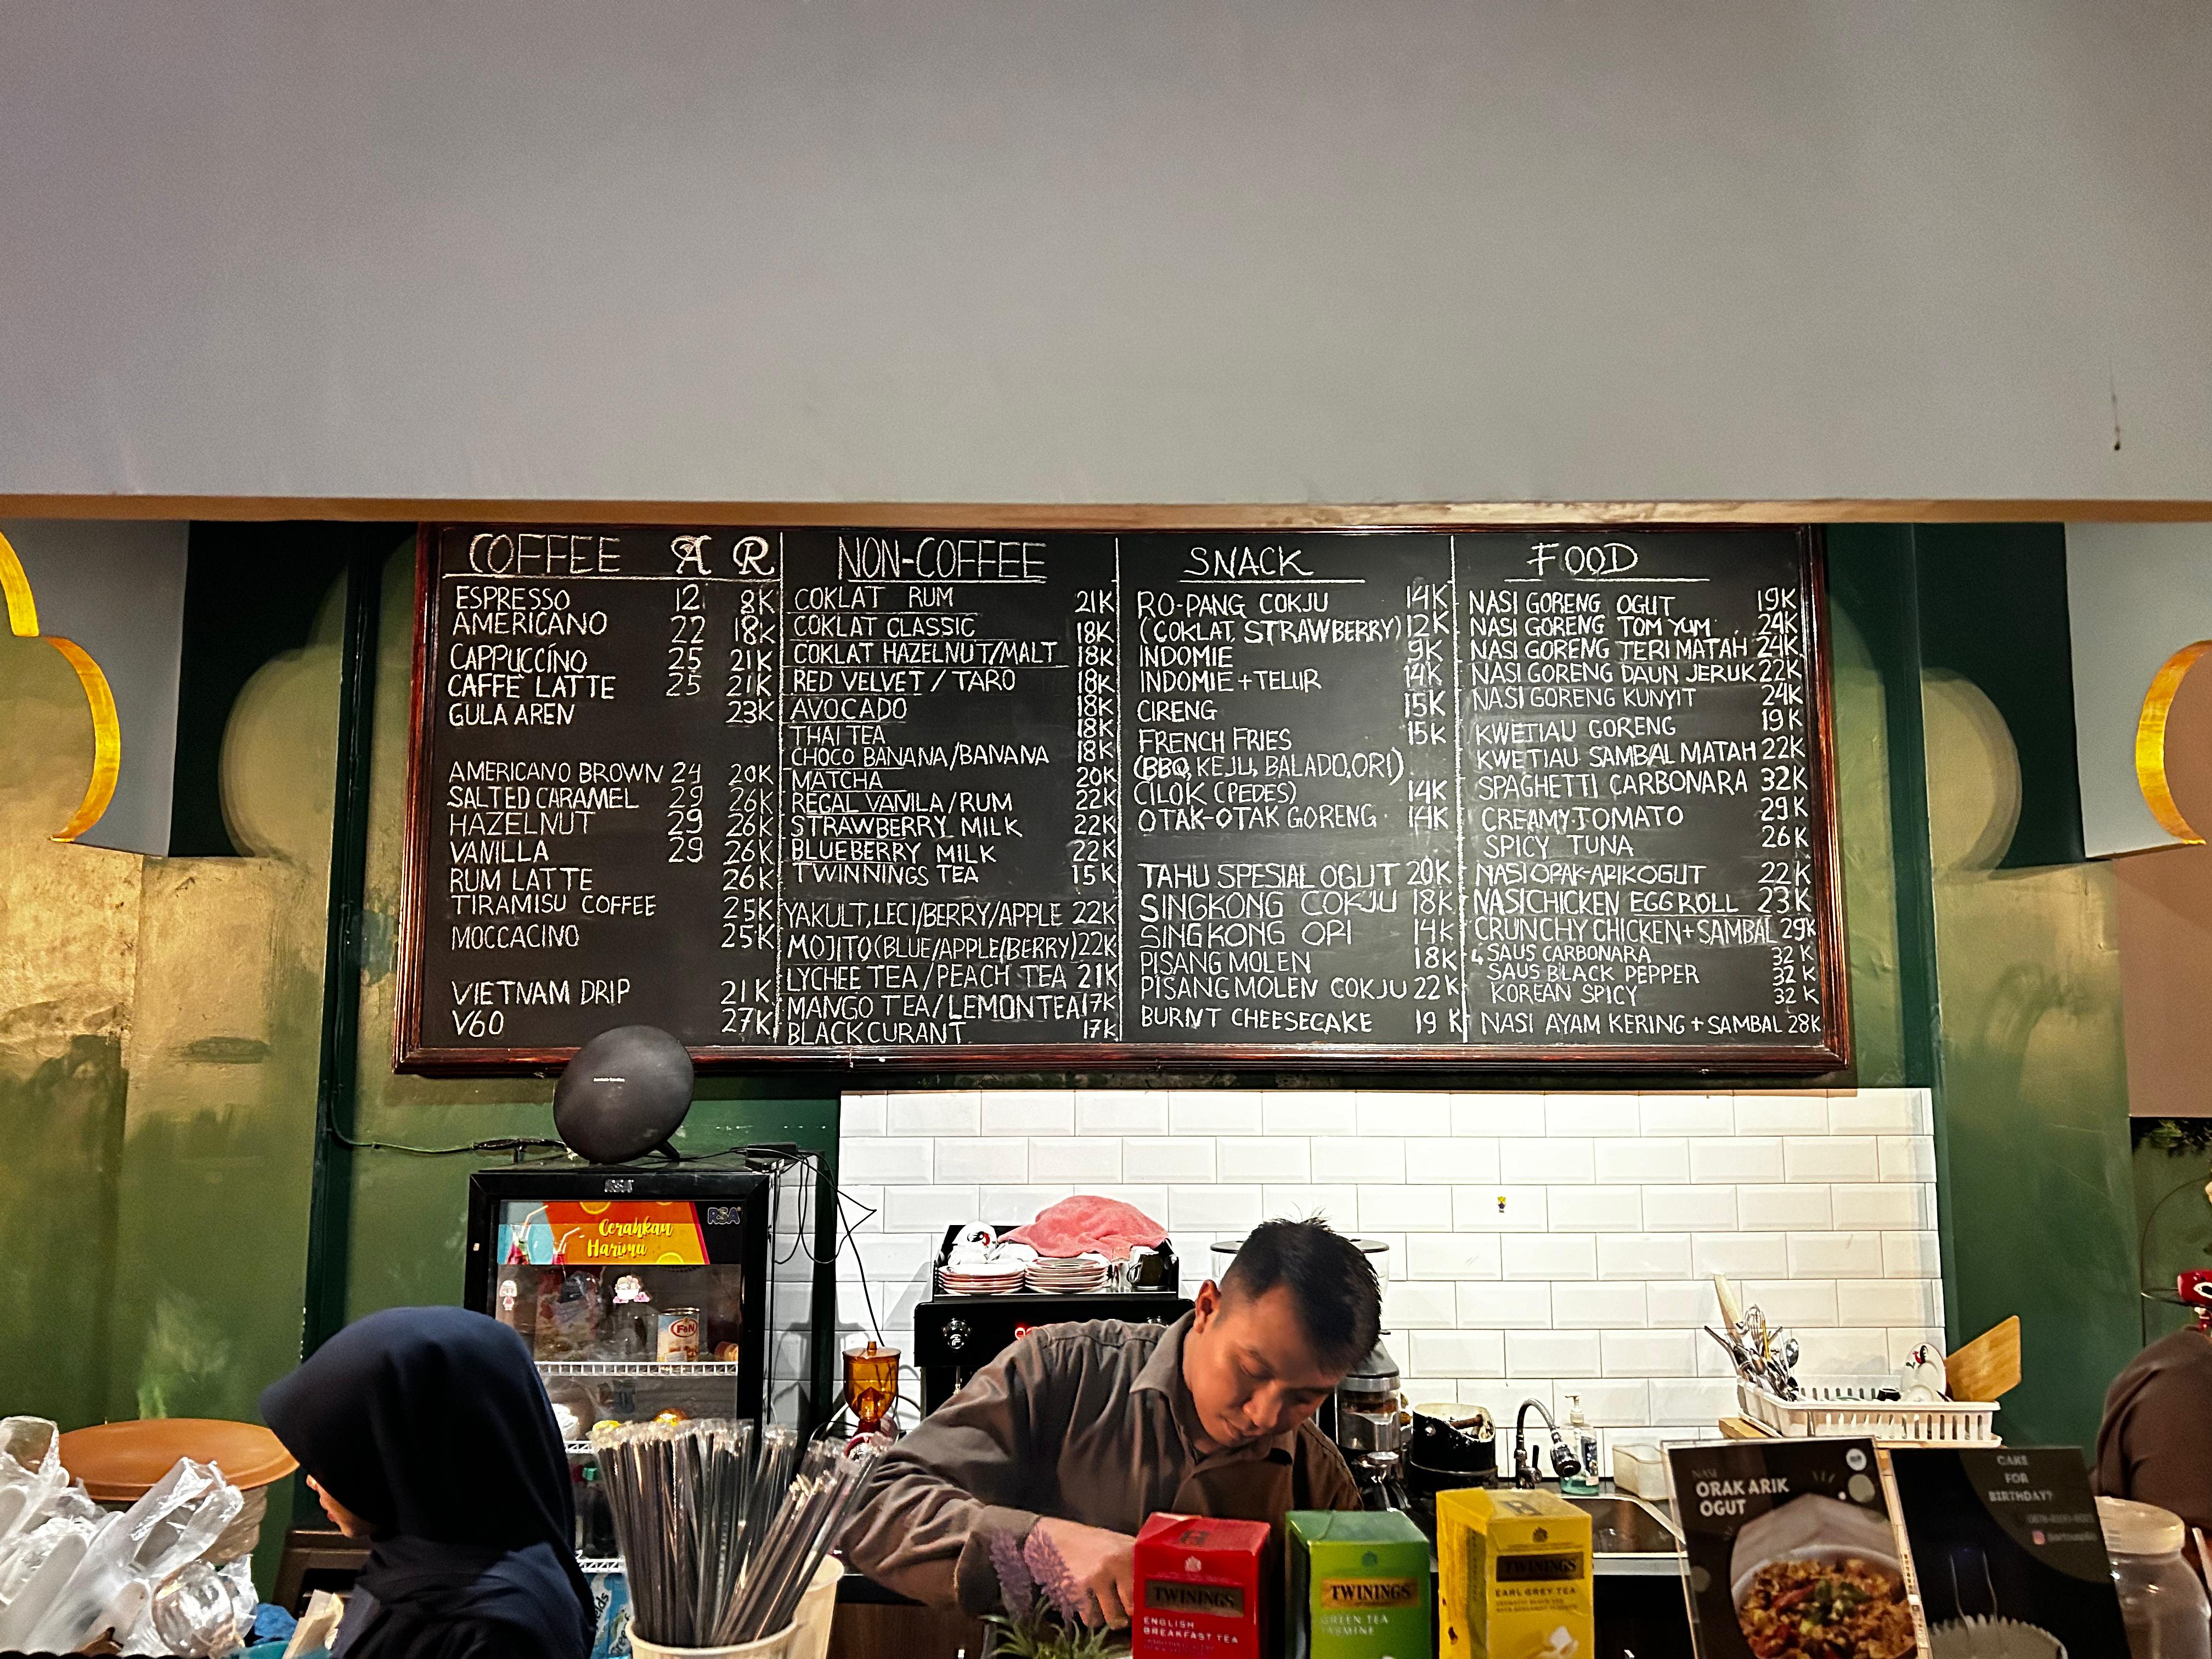 COFFEE A R
ESPRESSO 12 8K
AMERICANO 22 18K
CAPPUCCINO 25 21K
CAFFE LATTE 25 21K
GULA AREN 23K
AMERICANO BROWN 24 20K
SALTED CARAMEL 29 26K
HAZELNUT 29 26K
VANILLA 29 26K
RUM LATTE 26K
TIRAMISU COFFEE 25K
MOCCACINO 25K
VIETNAM DRIP 21K
V60 27K
NON-COFFEE
COKLAT RUM 21K
COKLAT CLASSIC 18K
COKLAT HAZELNUT/MALT 18K
RED VELVET / TARO 18K
AVOCADO 18K
THAI TEA 18K
CHOCO BANANA/BANANA 18K
MATCHA 20K
REGAL VANILA/RUM 22K
STRAWBERRY MILK 22K
BLUEBERRY MILK 22K
TWINNINGS TEA 15K
YAKULT, LECI/BERRY/APPLE 22K
MOJITO (BLUE/APPLE/BERRY) 22K
LYCHEE TEA / PEACH TEA 21K
MANGO TEA / LEMON TEA 17K
BLACKCURANT 17K
SNACK
RO-PANG COKJU 14K
(COKLAT, STRAWBERRY) 12K
INDOMIE 9K
INDOMIE + TELUR 14K
CIRENG 15K
FRENCH FRIES 15K
(BBQ, KEJU, BALADO, ORI)
CILOK (PEDES) 14K
OTAK-OTAK GORENG 14K
TAHU SPESIAL OGUT 20K
SINGKONG COKJU 18K
SINGKONG ORI 14K
PISANG MOLEN 18K
PISANG MOLEN COKJU 22K
BURNT CHEESECAKE 19K
FOOD
NASI GORENG OGUT 19K
NASI GORENG TOM YUM 24K
NASI GORENG TERI MATAH 24K
NASI GORENG DAUN JERUK 22K
NASI GORENG KUNYIT 24K
KWETIAU GORENG 19K
KWETIAU SAMBAL MATAH 22K
SPAGHETTI CARBONARA 32K
CREAMY-TOMATO 29K
SPICY TUNA 26K
NASI OPAK-ARIK OGUT 22K
NASI CHICKEN EGG ROLL 23K
CRUNCHY CHICKEN + SAMBAL 29K
↳ SAUS CARBONARA 32K
SAUS BLACK PEPPER 32K
KOREAN SPICY 32K
NASI AYAM KERING + SAMBAL 28K
RSA
Cerahkan
Harimu
RSA
F&N
TWININGS
ENGLISH
BREAKFAST TEA
TWININGS
GREEN TEA
JASMINE
TWININGS
EARL GREY TEA
NASI
ORAK ARIK
OGUT
CAKE
FOR
BIRTHDAY?